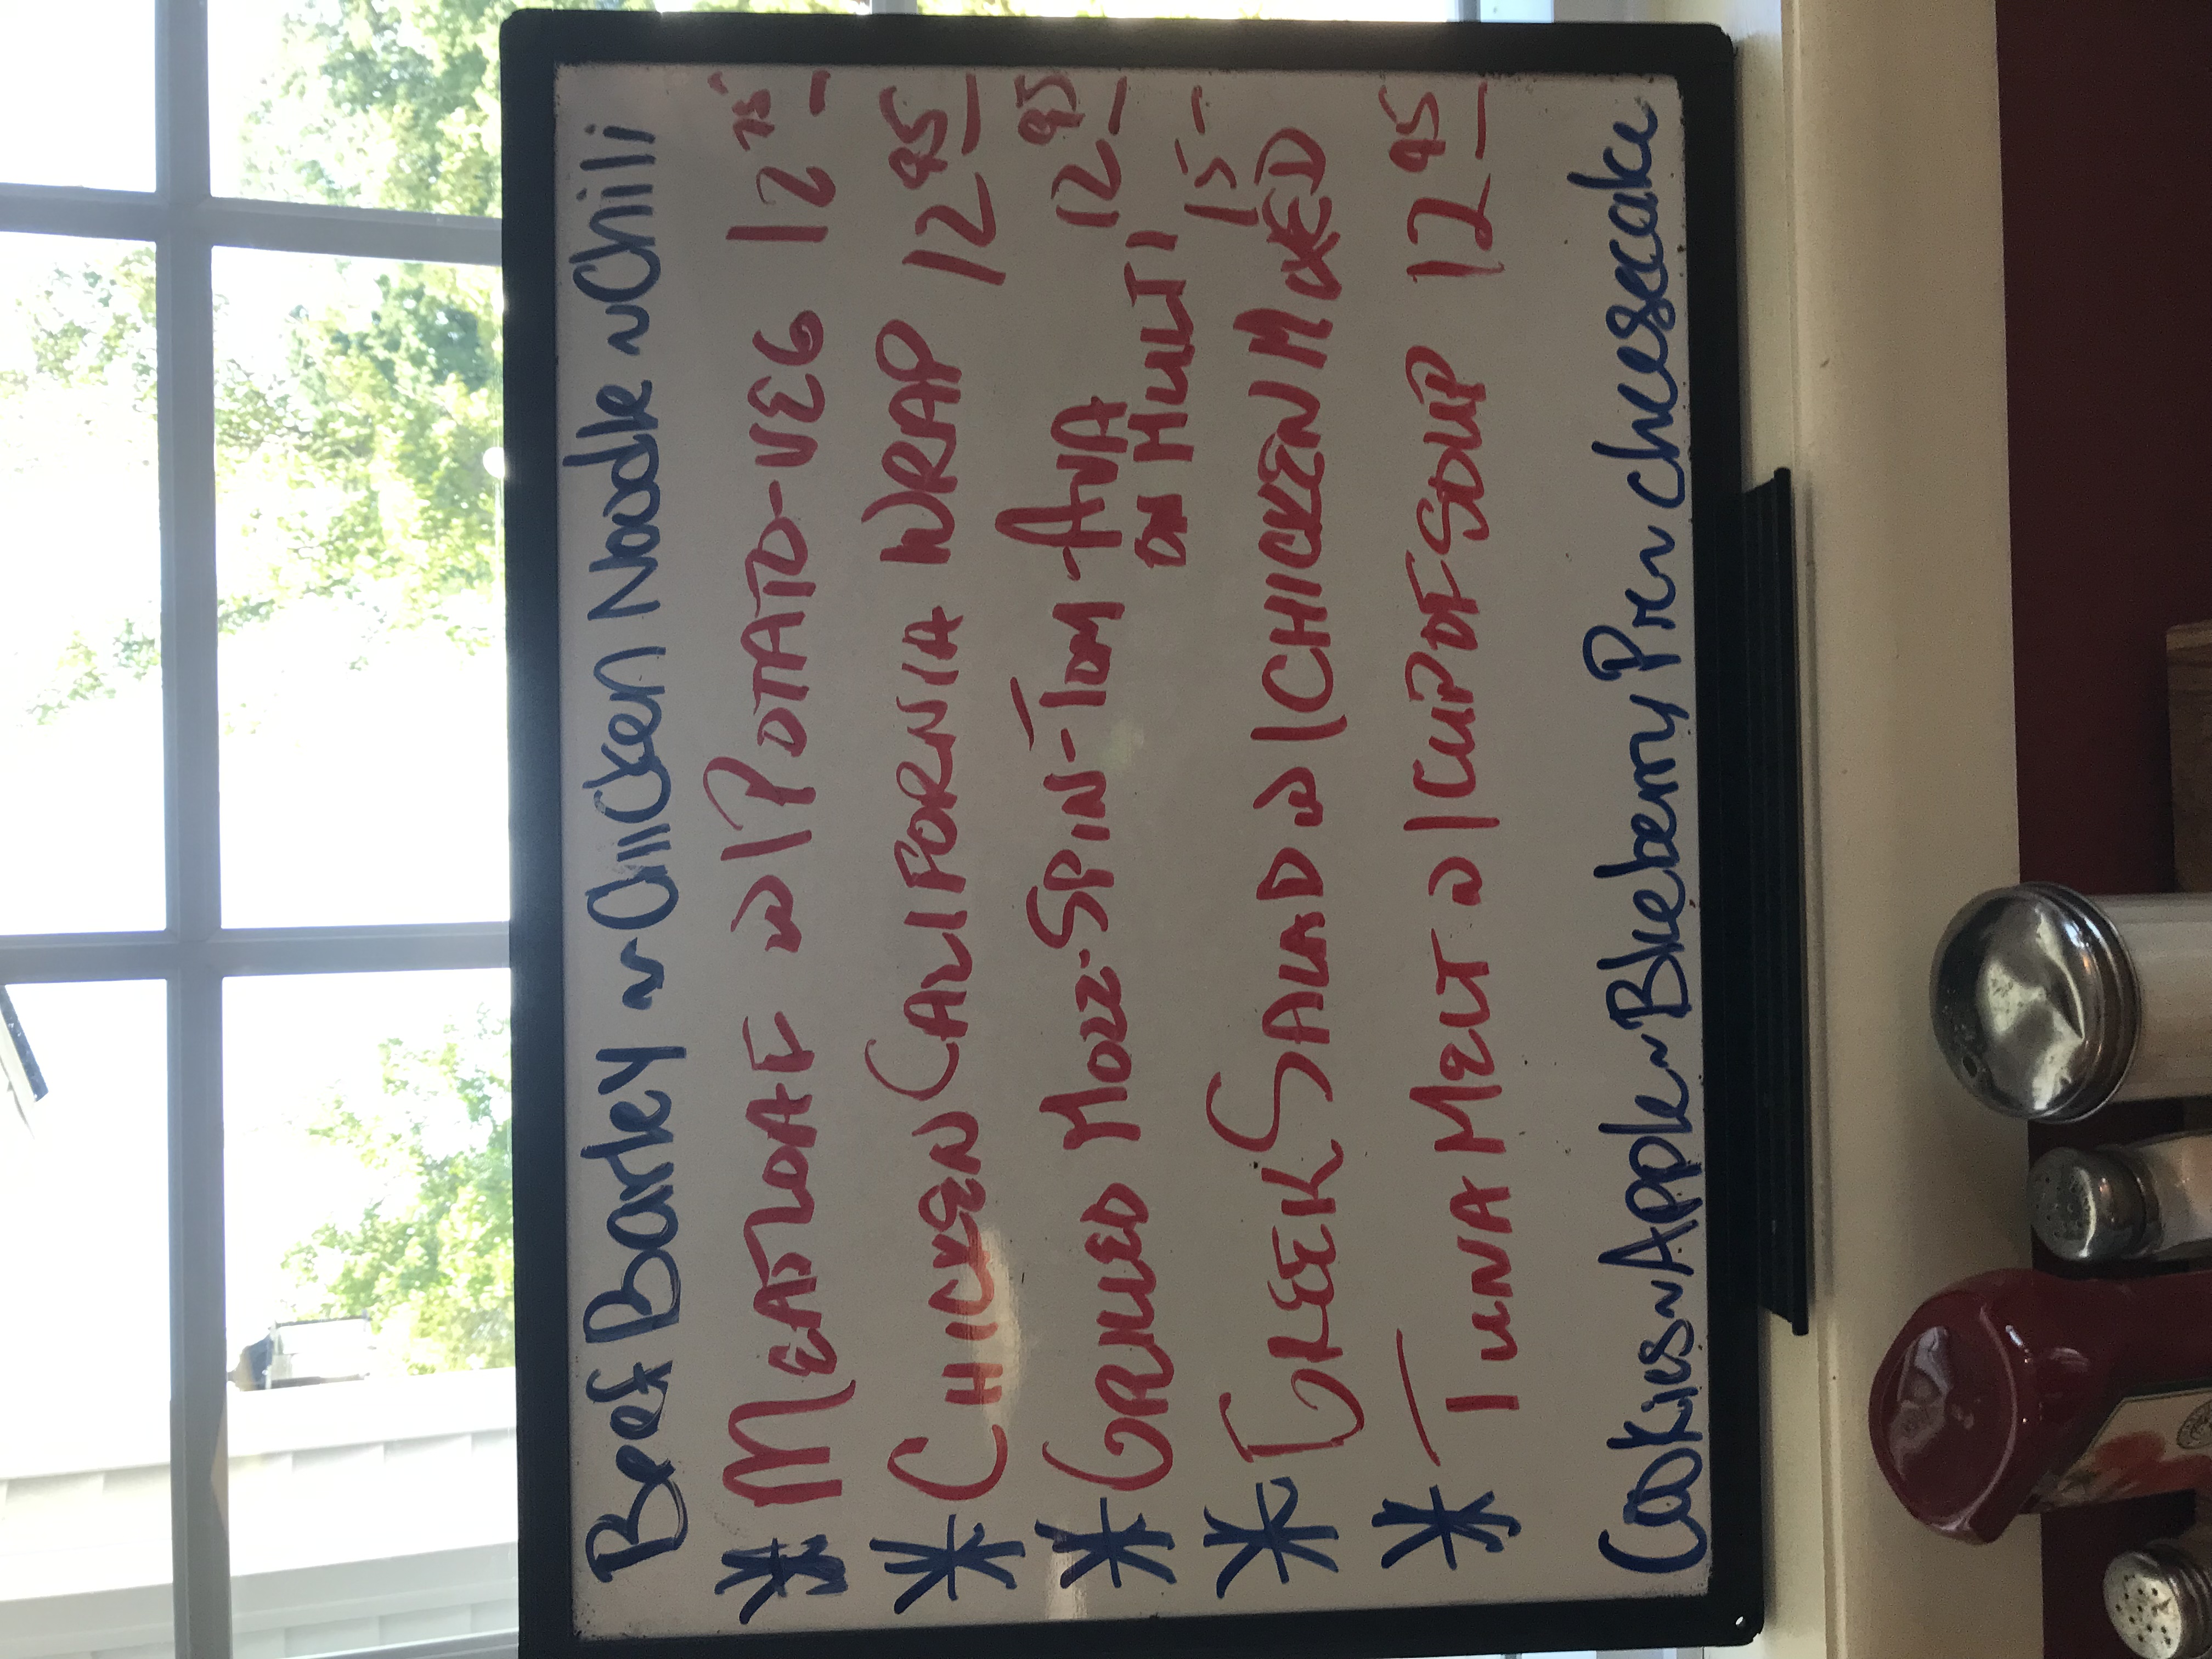 Beef Barley ~ Chicken Noodle ~ Chili
* MEATLOAF w/ POTATO-VEG 12 75
* CHICKEN CALIFORNIA WRAP 12 95
* GRILLED MOZZ-SPIN-TOM-AVA 12 95
ON MULTI
* GREEK SALAD w/ CHICKEN MIXED 15 -
* TUNA MELT w/ CUP OF SOUP 12 95
Cookies ~ Apple ~ Blueberry Pie ~ cheesecake